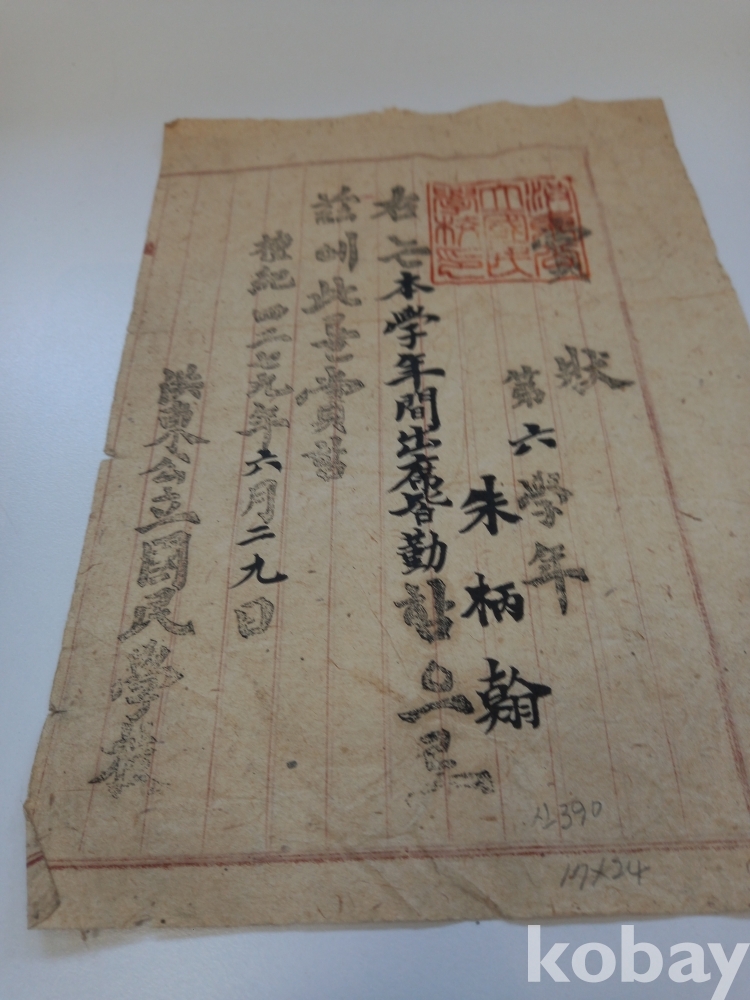 賞狀
第六學年
朱柄翰
右는本學年間出席皆勤함으로
玆에此를賞함
檀紀四二七九年六月二九日
洪東公立國民學校
洪東公
立國民
學校印
390
17x24
kobay